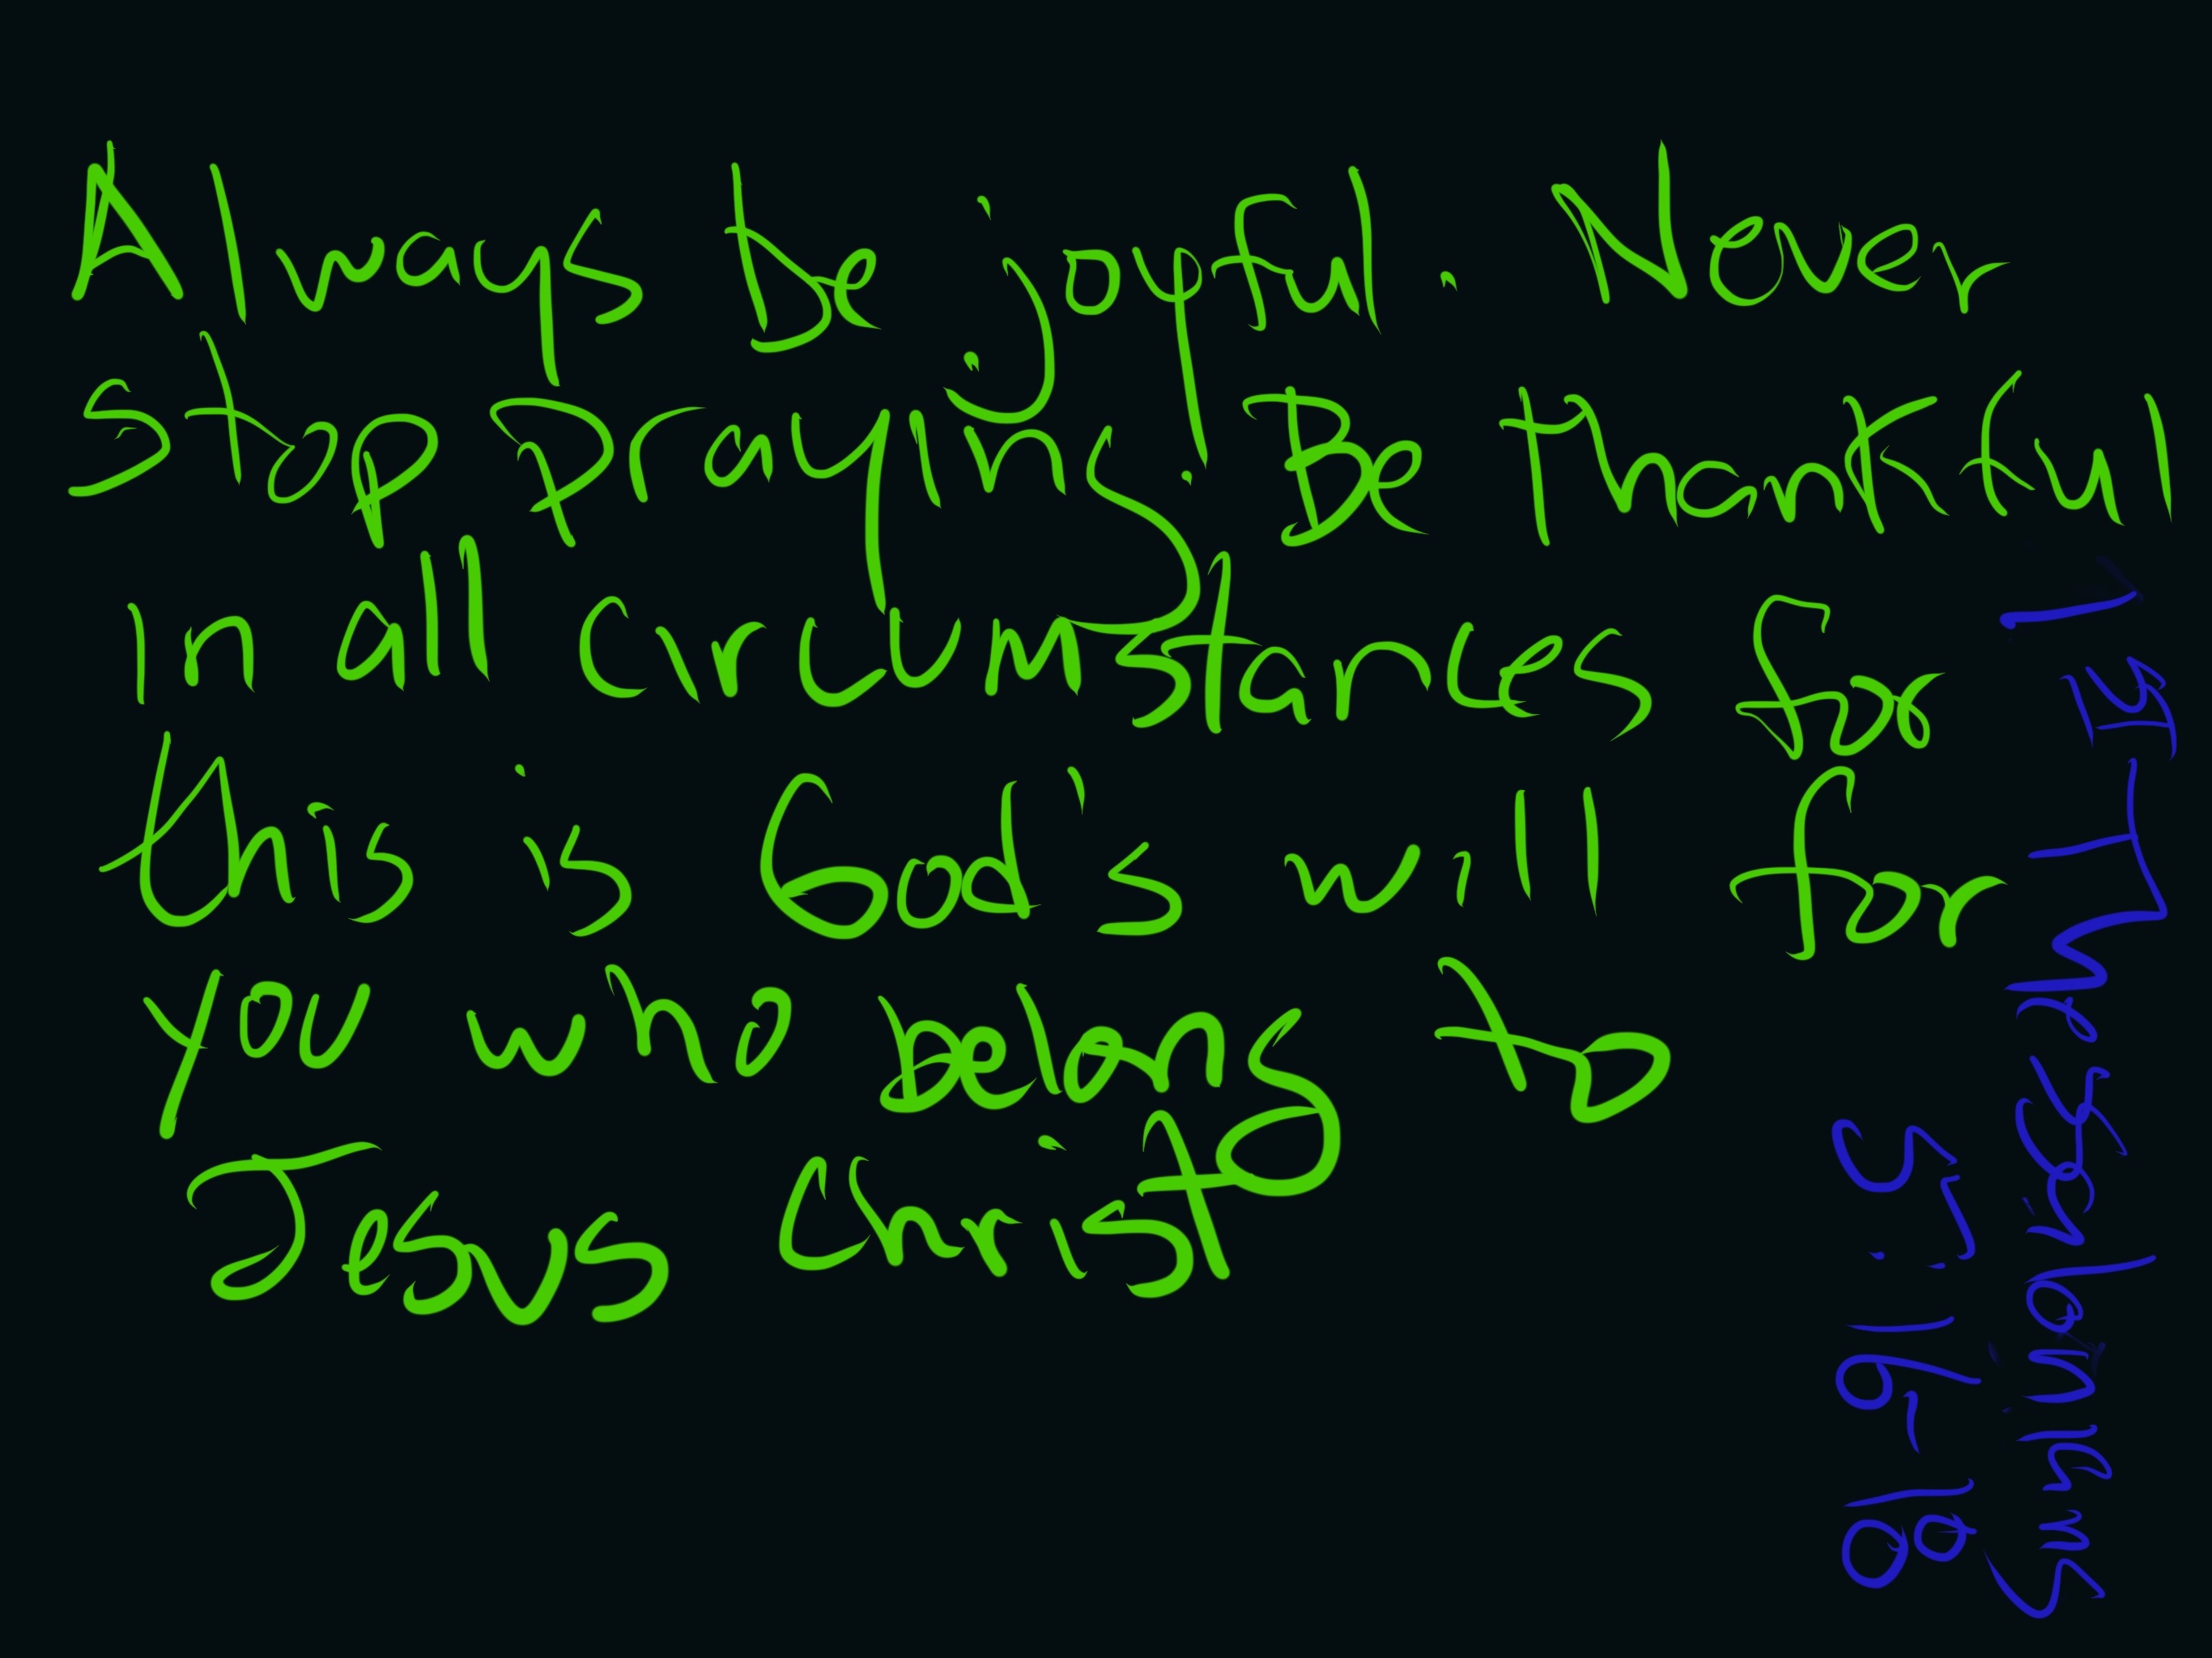 Always be joyful. Never
stop praying. Be thankful
in all circumstances for
this is God's will for
you who belong to
Jesus Christ
1st Thessalonians
5:16-18